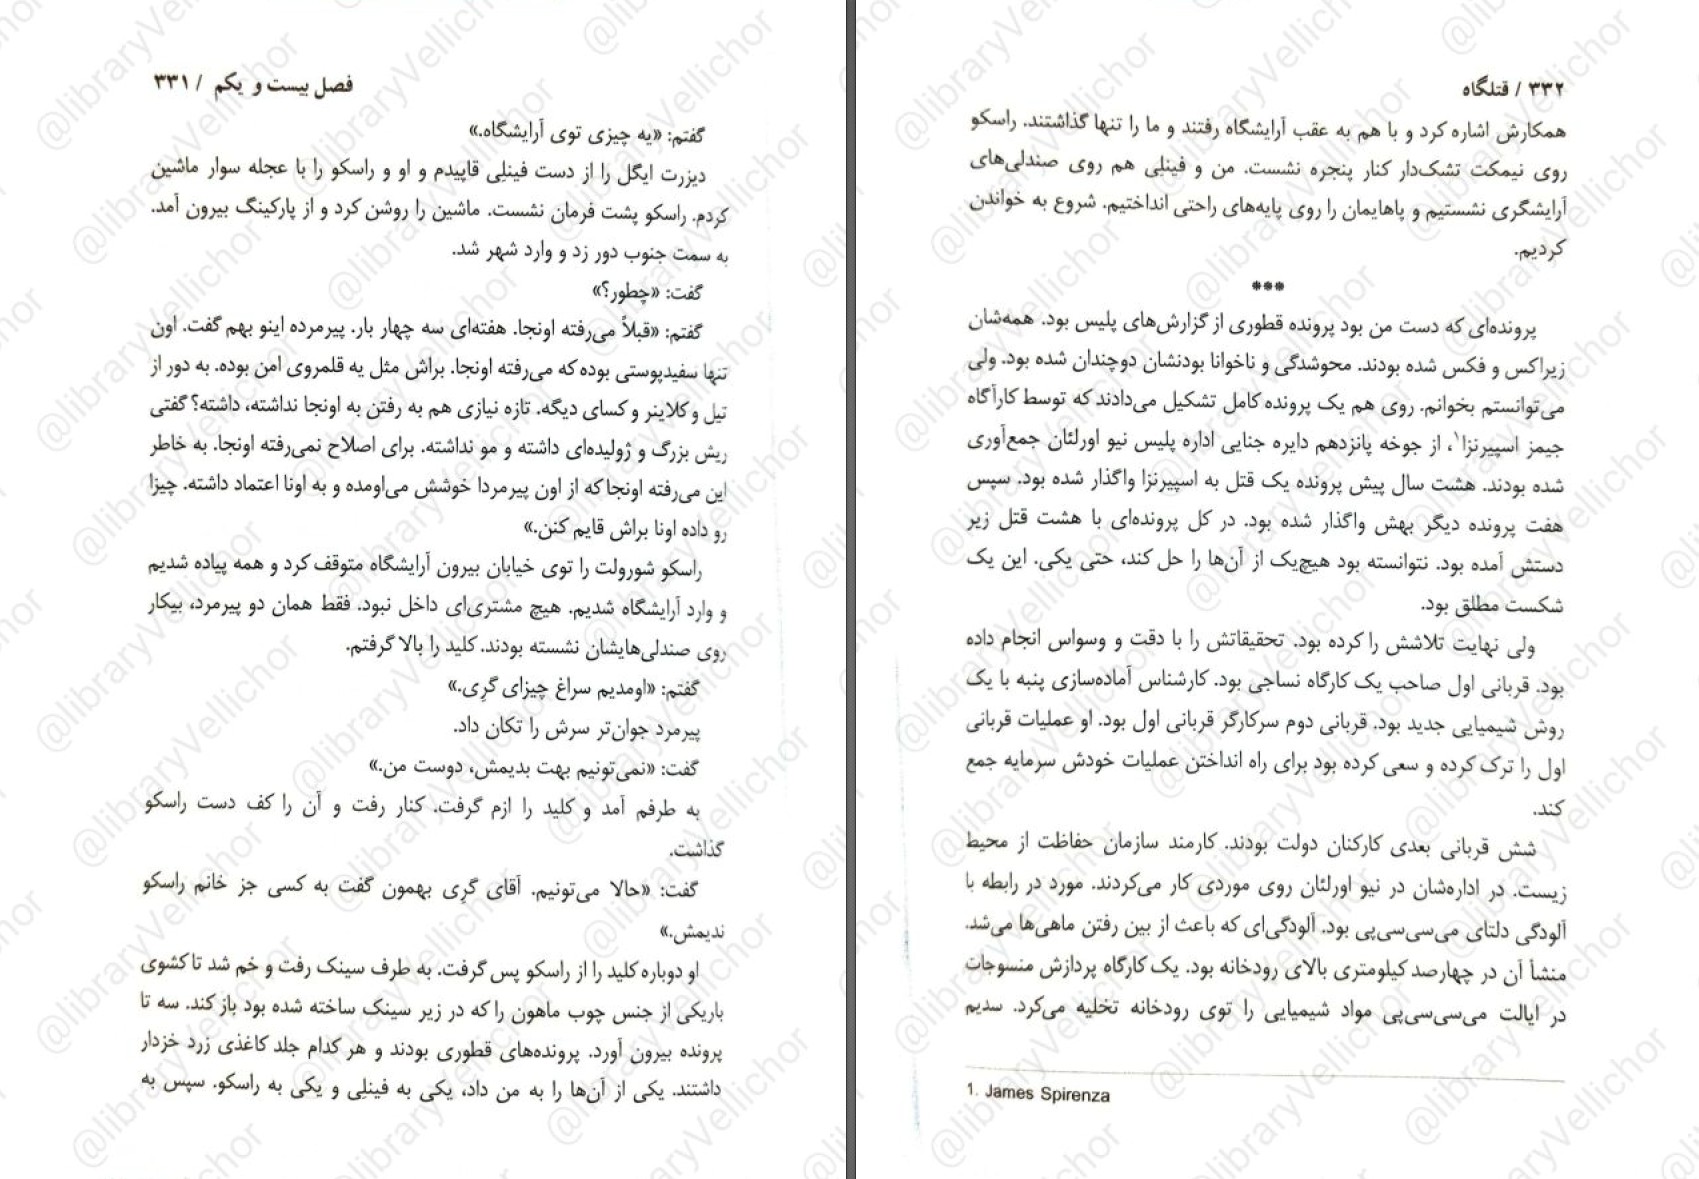 فصل بیست و یکم / ۳۳۱
گفتم: «یه چیزی توی آرایشگاه.»
دیزرت ایگل را از دست فینلِی قاپیدم و او و راسکو را با عجله سوار ماشین
کردم. راسکو پشت فرمان نشست. ماشین را روشن کرد و از پارکینگ بیرون آمد.
به سمت جنوب دور زد و وارد شهر شد.
گفت: «چطور؟»
گفتم: «قبلاً می‌رفته اونجا. هفته‌ای سه چهار بار. پیرمرده اینو بهم گفت. اون
تنها سفیدپوستی بوده که می‌رفته اونجا. براش مثل یه قلمروی امن بوده. به دور از
تیل و کلاینر و کسای دیگه. تازه نیازی هم به رفتن به اونجا نداشته، داشته؟ گفتی
ریش بزرگ و ژولیده‌ای داشته و مو نداشته. برای اصلاح نمی‌رفته اونجا. به خاطر
این می‌رفته اونجا که از اون پیرمردا خوشش می‌اومده و به اونا اعتماد داشته. چیزا
رو داده اونا براش قایم کنن.»
راسکو شورولت را توی خیابان بیرون آرایشگاه متوقف کرد و همه پیاده شدیم
و وارد آرایشگاه شدیم. هیچ مشتری‌ای داخل نبود. فقط همان دو پیرمرد، بیکار
روی صندلی‌هایشان نشسته بودند. کلید را بالا گرفتم.
گفتم: «اومدیم سراغ چیزای گرِی.»
پیرمرد جوان‌تر سرش را تکان داد.
گفت: «نمی‌تونیم بهت بدیمش، دوست من.»
به طرفم آمد و کلید را ازم گرفت. کنار رفت و آن را کف دست راسکو
گذاشت.
گفت: «حالا می‌تونیم. آقای گرِی بهمون گفت به کسی جز خانم راسکو
ندیمش.»
او دوباره کلید را از راسکو پس گرفت. به طرف سینک رفت و خم شد تا کشوی
باریکی از جنس چوب ماهون را که در زیر سینک ساخته شده بود باز کند. سه تا
پرونده بیرون آورد. پرونده‌های قطوری بودند و هر کدام جلد کاغذی زرد خزدار
داشتند. یکی از آن‌ها را به من داد، یکی به فینلِی و یکی به راسکو. سپس به
۳۳۲ / قتلگاه
همکارش اشاره کرد و با هم به عقب آرایشگاه رفتند و ما را تنها گذاشتند. راسکو
روی نیمکت تشک‌دار کنار پنجره نشست. من و فینلِی هم روی صندلی‌های
آرایشگری نشستیم و پاهایمان را روی پایه‌های راحتی انداختیم. شروع به خواندن
کردیم.
***
پرونده‌ای که دست من بود پرونده قطوری از گزارش‌های پلیس بود. همه‌شان
زیراکس و فکس شده بودند. محوشدگی و ناخوانا بودنشان دوچندان شده بود. ولی
می‌توانستم بخوانم. روی هم یک پرونده کامل تشکیل می‌دادند که توسط کارآگاه
جیمز اسپیرنزا۱، از جوخه پانزدهم دایره جنایی اداره پلیس نیو اورلئان جمع‌آوری
شده بودند. هشت سال پیش پرونده یک قتل به اسپیرنزا واگذار شده بود. سپس
هفت پرونده دیگر بهش واگذار شده بود. در کل پرونده‌ای با هشت قتل زیر
دستش آمده بود. نتوانسته بود هیچ‌یک از آن‌ها را حل کند، حتی یکی. این یک
شکست مطلق بود.
ولی نهایت تلاشش را کرده بود. تحقیقاتش را با دقت و وسواس انجام داده
بود. قربانی اول صاحب یک کارگاه نساجی بود. کارشناس آماده‌سازی پنبه با یک
روش شیمیایی جدید بود. قربانی دوم سرکارگر قربانی اول بود. او عملیات قربانی
اول را ترک کرده و سعی کرده بود برای راه انداختن عملیات خودش سرمایه جمع
کند.
شش قربانی بعدی کارکنان دولت بودند. کارمند سازمان حفاظت از محیط
زیست. در اداره‌شان در نیو اورلئان روی موردی کار می‌کردند. مورد در رابطه با
آلودگی دلتای می‌سی‌سی‌پی بود. آلودگی‌ای که باعث از بین رفتن ماهی‌ها می‌شد.
منشأ آن در چهارصد کیلومتری بالای رودخانه بود. یک کارگاه پردازش منسوجات
در ایالت می‌سی‌سی‌پی مواد شیمیایی را توی رودخانه تخلیه می‌کرد. سدیم
1. James Spirenza
@libraryVellichor